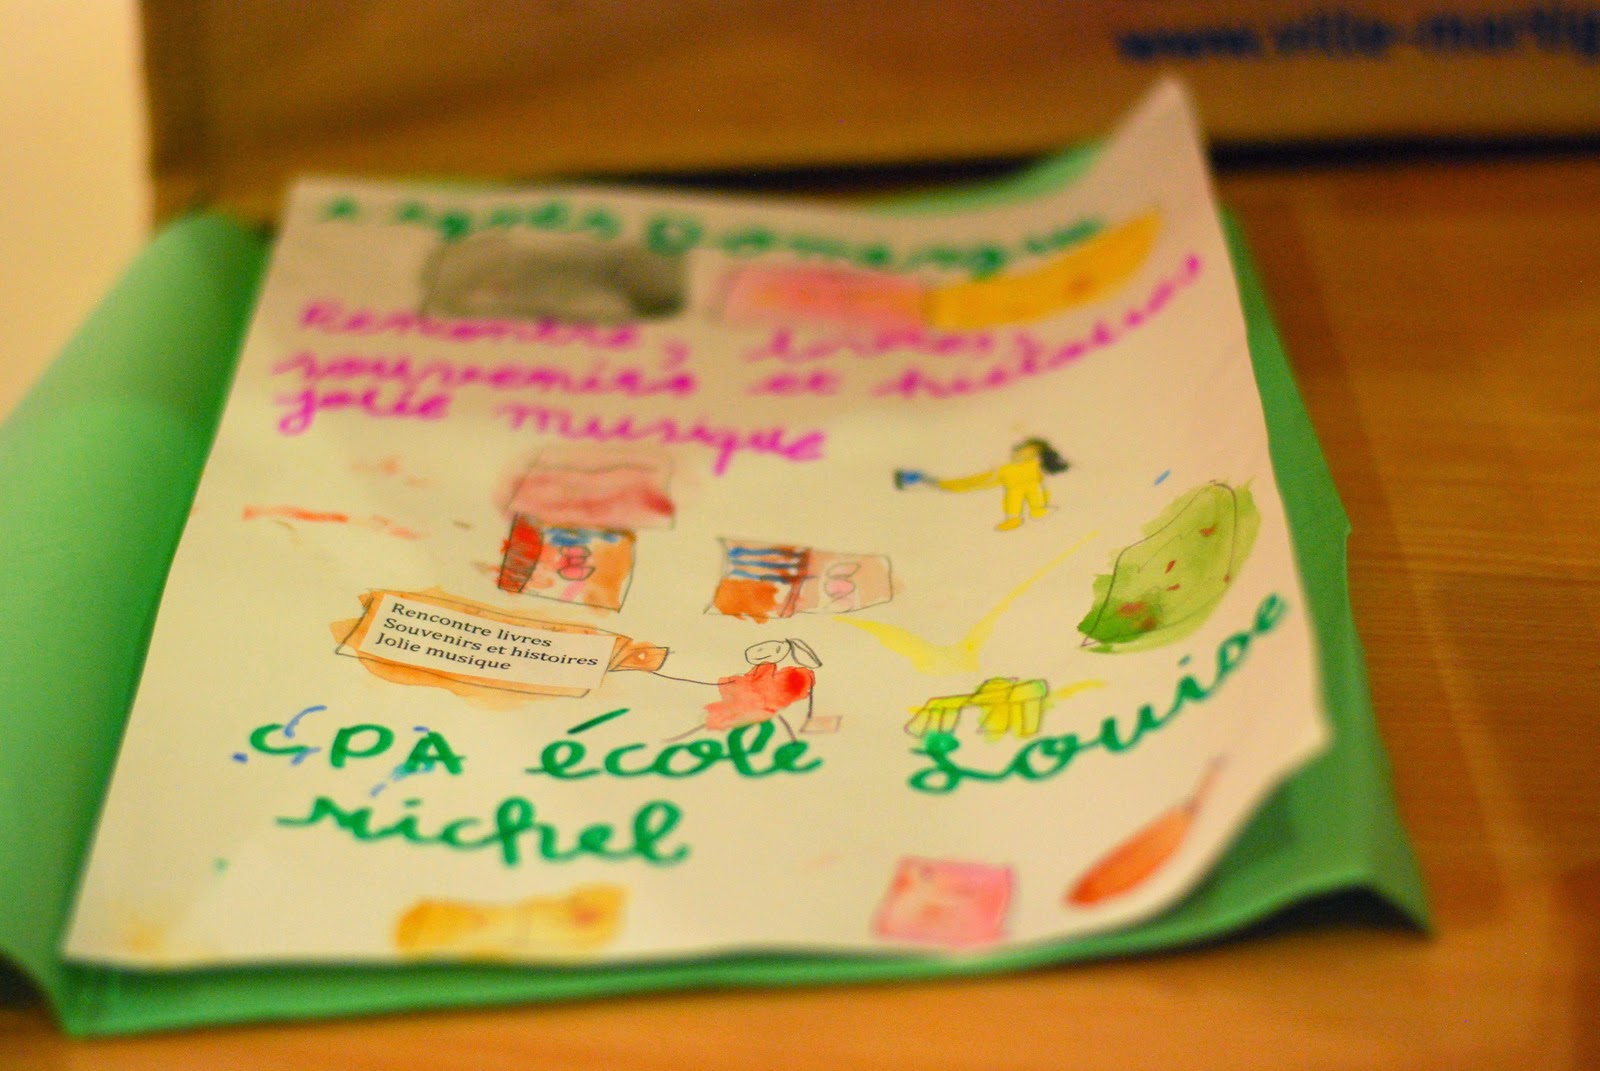 www.ville-martig
Agnès Domergue
Rencontre, livres,
souvenirs et histoires
jolie musique
Rencontre livres
Souvenirs et histoires
Jolie musique
CPA école Louise
Michel